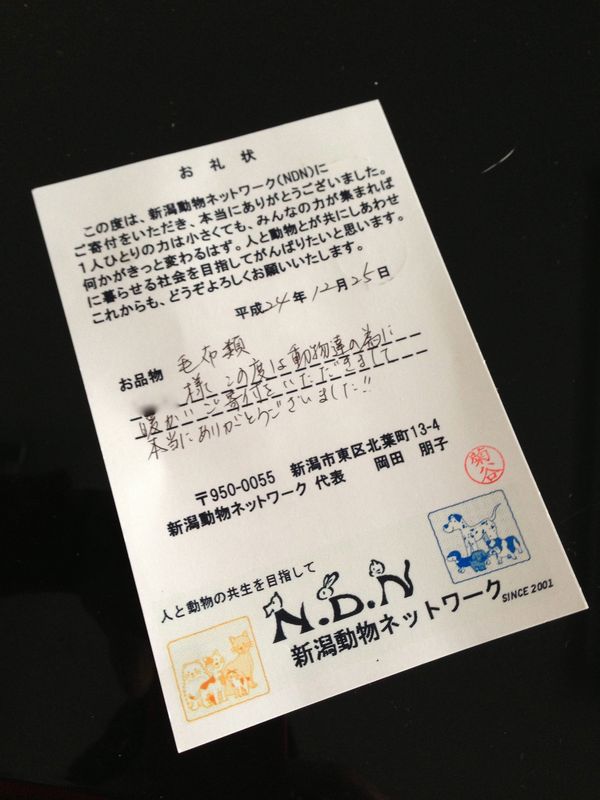 お礼状
この度は、新潟動物ネットワーク(NDN)に
ご寄付をいただき、本当にありがとうございました。
1人ひとりの力は小さくても、みんなの力が集まれば
何かがきっと変わるはず。人と動物とが共にしあわせ
に暮らせる社会を目指してがんばりたいと思います。
これからも、どうぞよろしくお願いいたします。
平成24年12月25日
お品物 毛布類
様、この度は動物達の為に
暖かいご寄付をいただきまして
本当にありがとうございました!!
〒950-0055 新潟市東区北葉町13-4
新潟動物ネットワーク 代表 岡田 朋子
菊谷
人と動物の共生を目指して
N.D.N
新潟動物ネットワーク
SINCE 2001